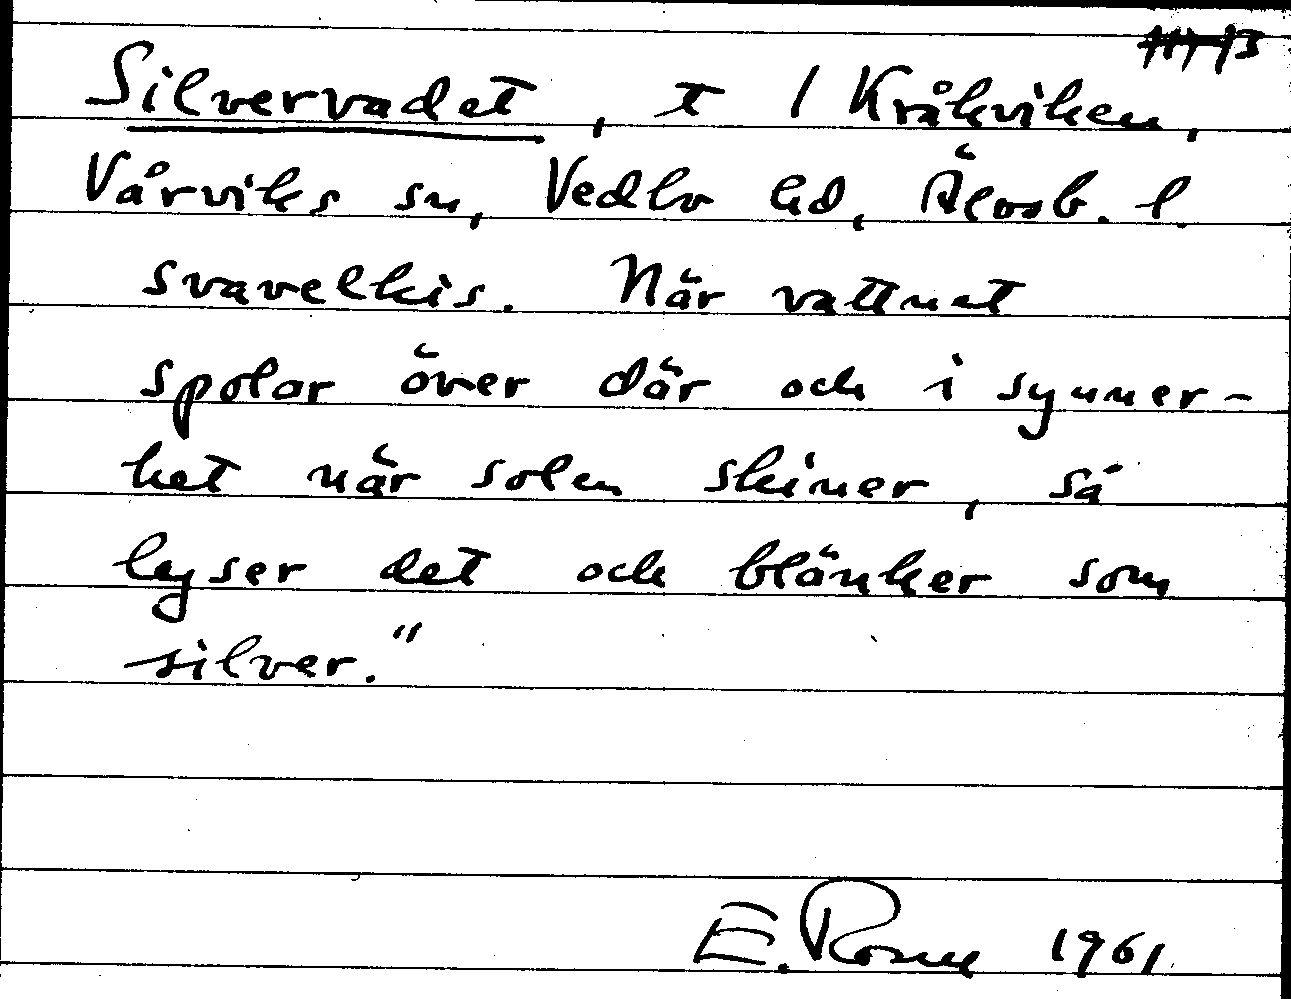 Silvervadet, t / Kråkviken,
Vårviks sn, Vedbo hd, Älvsb. l.
svavelkis. När vattnet
spolar över där och i synner-
het när solen skiner, så
lyser det och blänker som
silver."
E. Rosne 1961